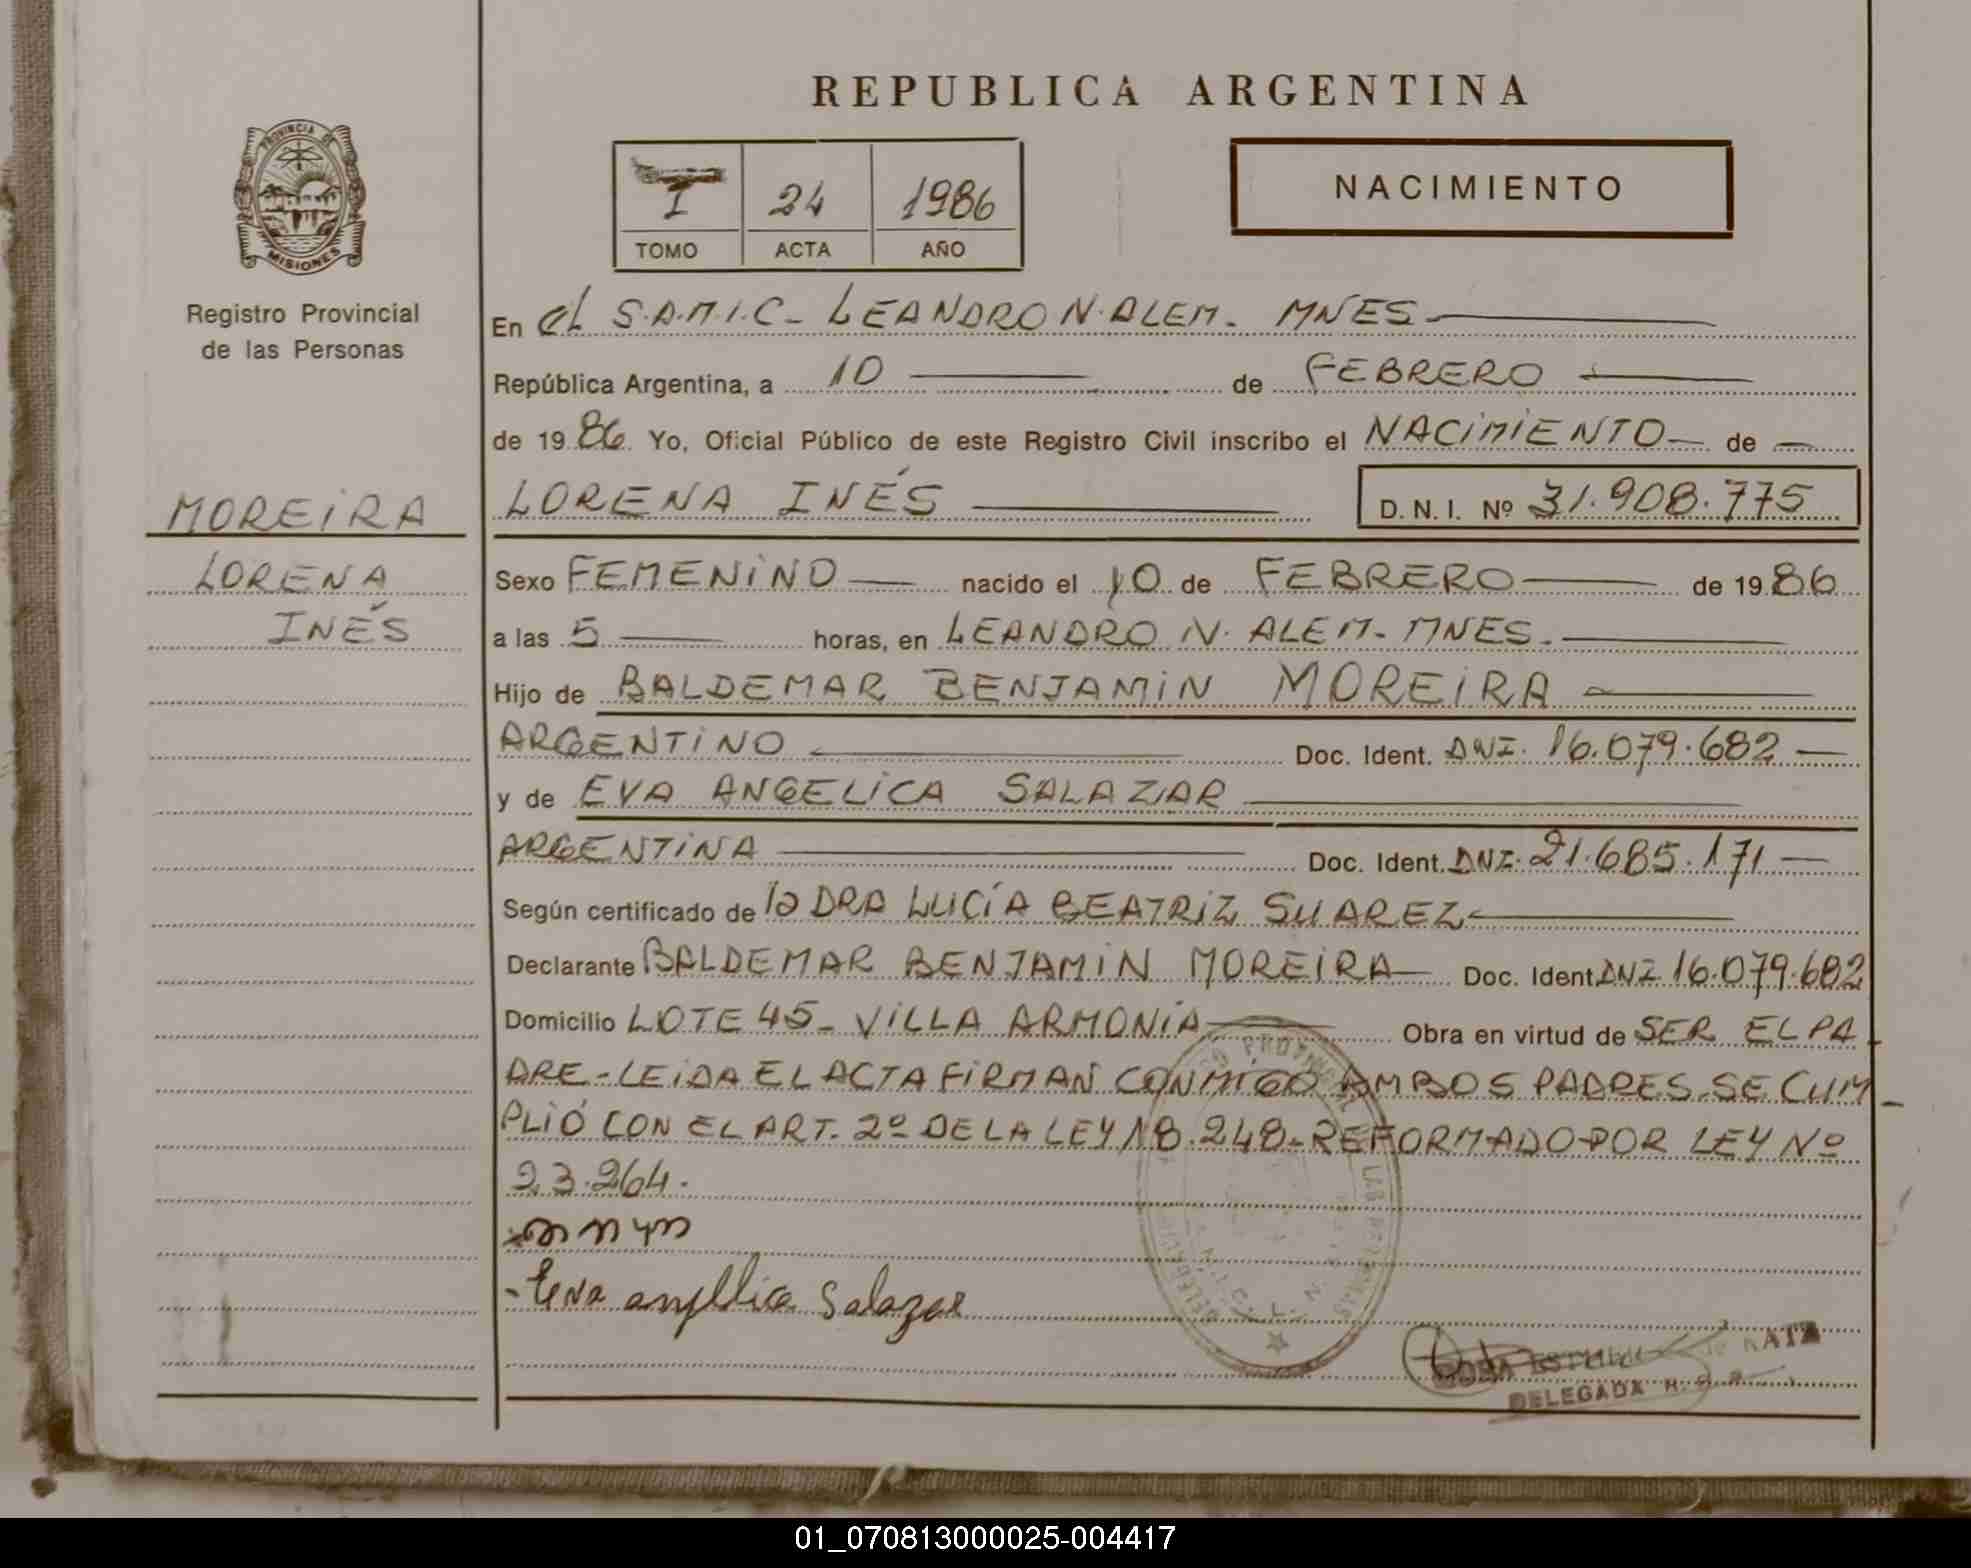 REPUBLICA ARGENTINA
PROVINCIA DE
MISIONES
Registro Provincial
de las Personas
I 24 1986
TOMO ACTA AÑO
NACIMIENTO
En el S.A.M.I.C- LEANDRO N. ALEM. MNES
República Argentina, a 10 de FEBRERO
de 1986 Yo, Oficial Público de este Registro Civil inscribo el NACIMIENTO de
MOREIRA
LORENA INÉS D. N. I. Nº 31.908.775
LORENA
INÉS
Sexo FEMENINO nacido el 10 de FEBRERO de 1986
a las 5 horas, en LEANDRO N. ALEM- MNES.
Hijo de BALDEMAR BENJAMIN MOREIRA
ARGENTINO Doc. Ident. DNI. 16.079.682
y de EVA ANGELICA SALAZAR
ARGENTINA Doc. Ident. DNI. 21.685.171
Según certificado de la DRA LUCÍA BEATRIZ SUAREZ
Declarante BALDEMAR BENJAMIN MOREIRA Doc. Ident DNI 16.079.682
Domicilio LOTE 45- VILLA ARMONÍA Obra en virtud de SER EL PA-
DRE-LEIDA EL ACTA FIRMAN CONMIGO AMBOS PADRES. SE CUM-
PLIÓ CON EL ART. 2º DE LA LEY 18.248-REFORMADO POR LEY Nº
23.264.
Eva angelica Salazar
DELEGADA
01_070813000025-004417